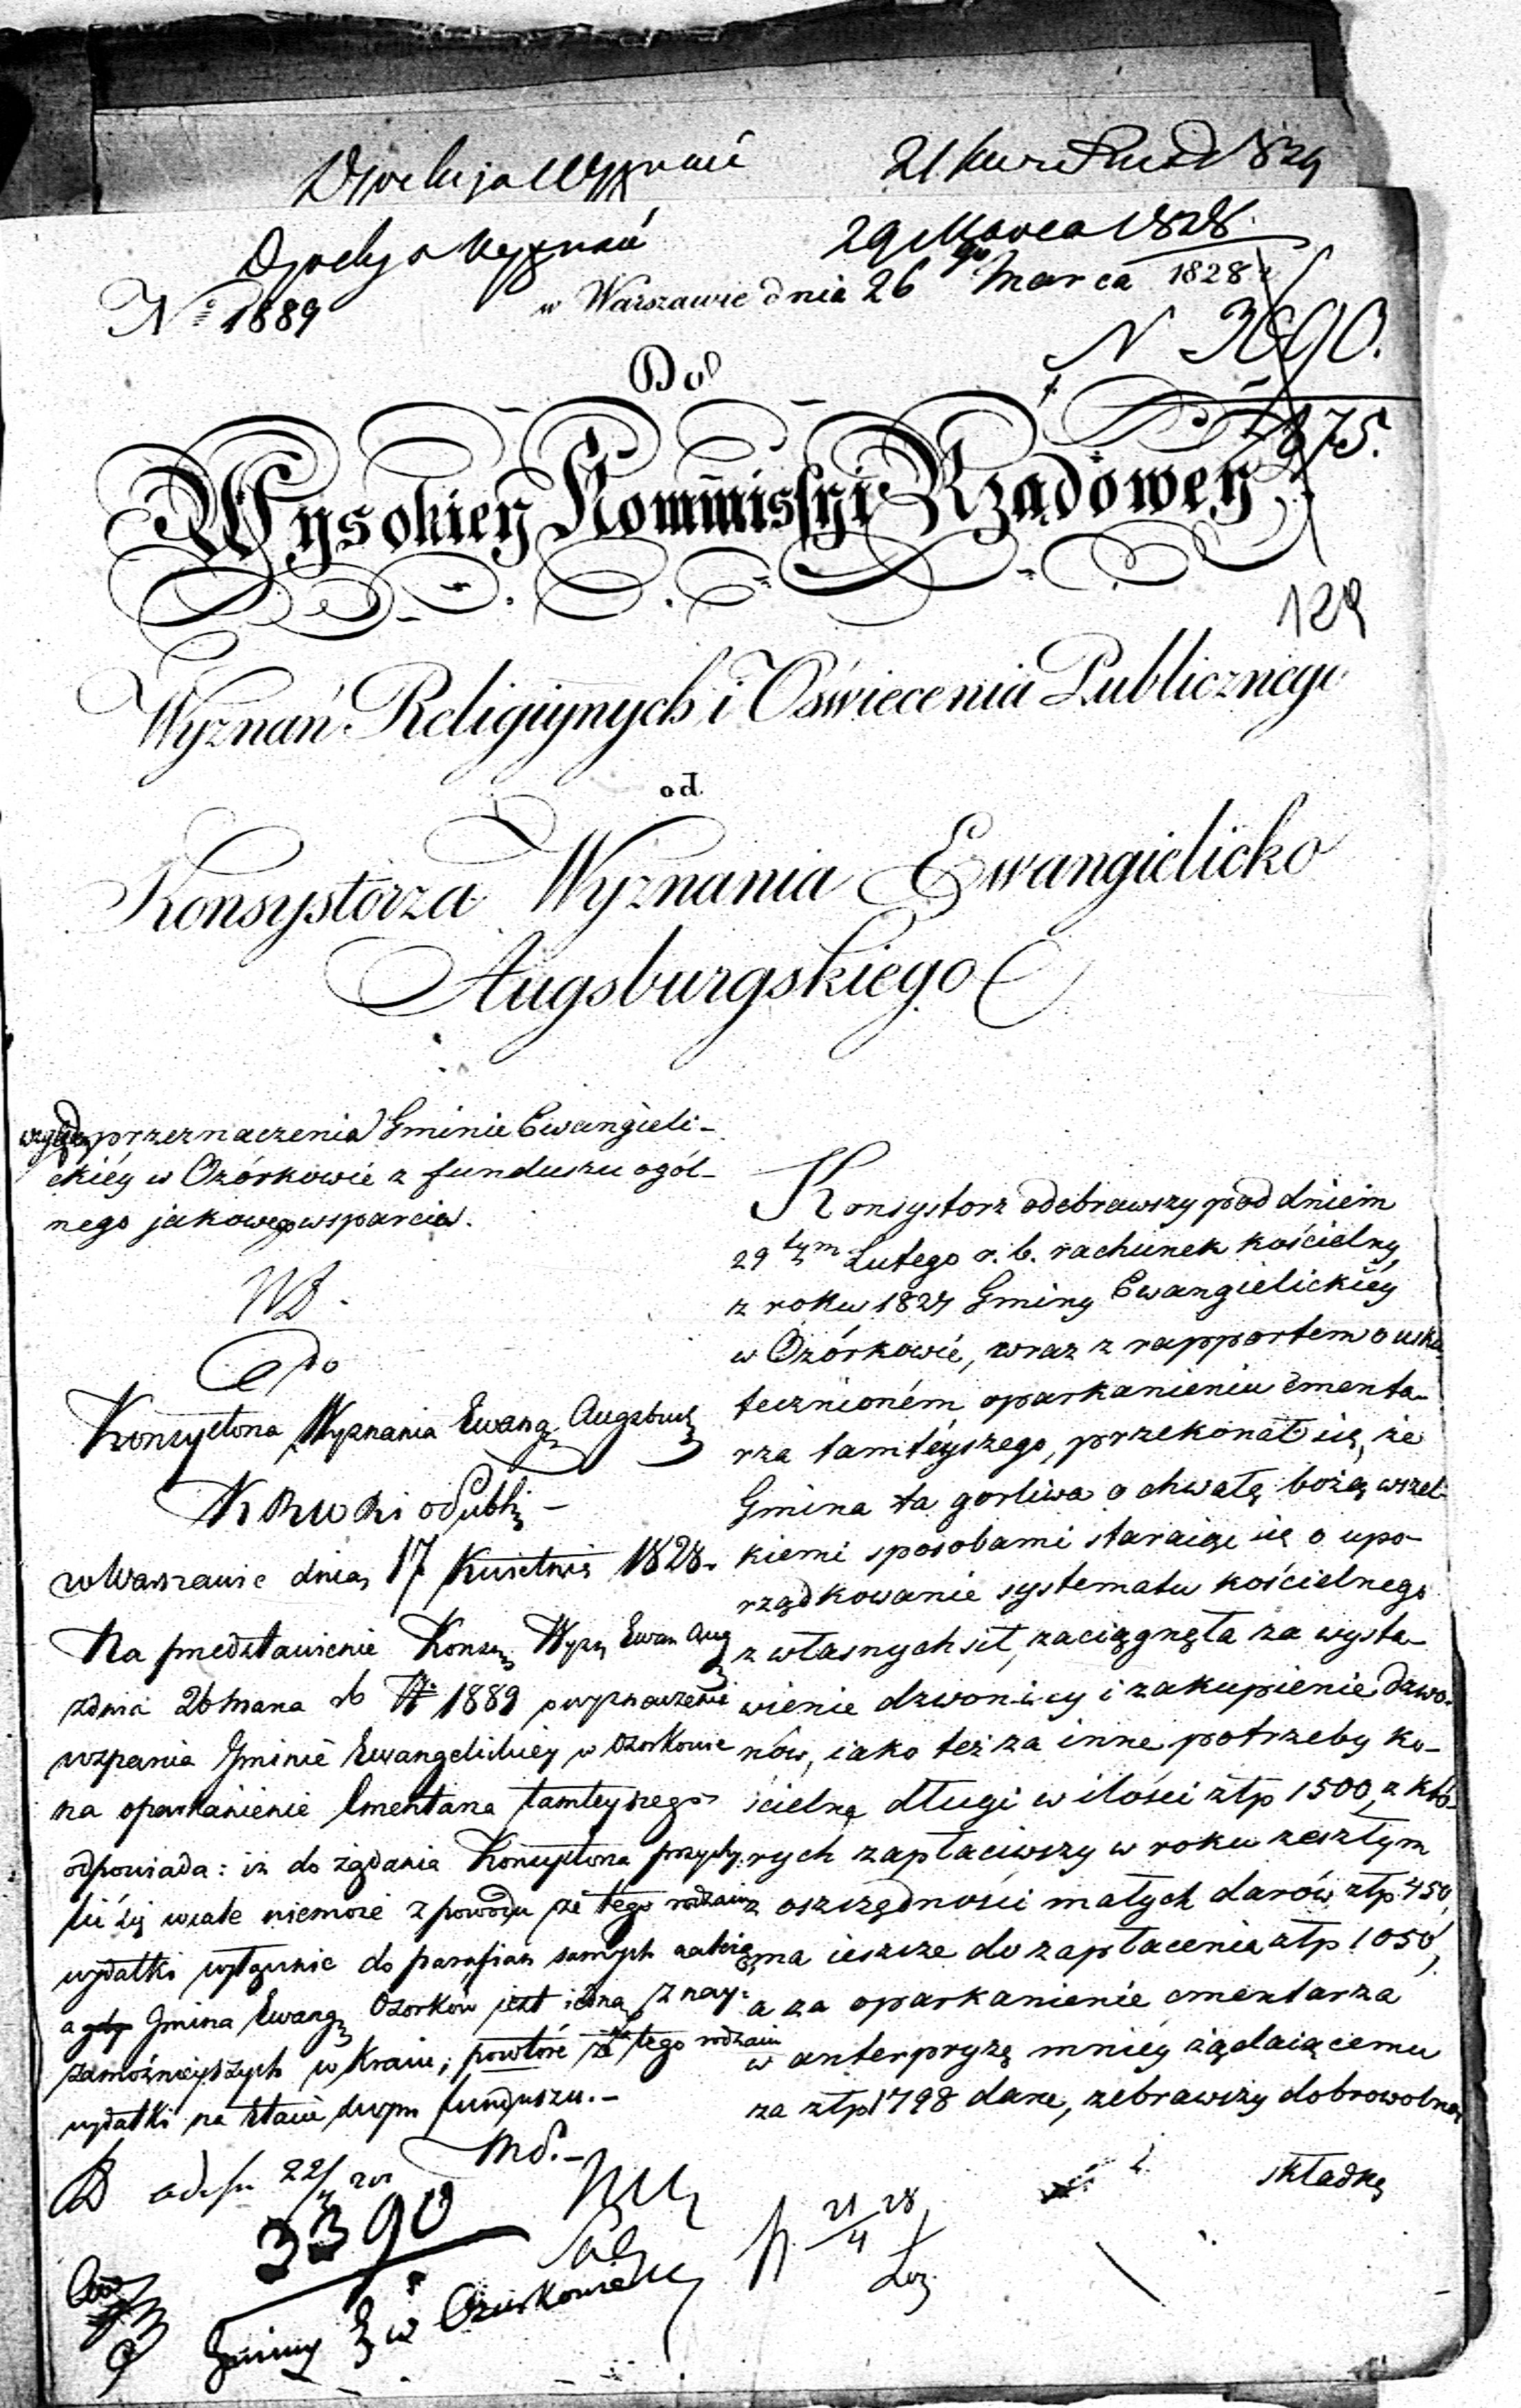 Dyrekcya Wyznań
29 Marca 1828.
w Warszawie dnia 26go Marca 1828 r
No 1889
N 3690.
Do
175.
Wysokiey Kommissyi Rządowey
129
Wyznań Religiynych i Oświecenia Publicznego
od
Konsystorza Wyznania Ewangielicko
Augsburgskiego
względem przeznaczenia Gminie Ewangieli-
ckiéy w Ozórkowie z funduszu ogól-
nego jakowego wsparcia.
Do
Konsystorza Wyznania Ewang Augsburg
K R W R i O Publ
w Warszawie dnia 17 Kwietnia 1828.
Na przedstawienie Konsy Wyzn Ewan Aug
z dnia 26 Marca rb No 1889 o wyznaczenie
wsparcia Gminie Ewangelickiey w Ozorkowie
na oparkanienie Cmentarza tamteyszego
odpowiada: iż do żądania Konsystorza przychy-
lić się wcale niemoże z powodu że tego rodzaiu
wydatki wyłącznie do parafian samych należą
a gdy Gmina Ewang Ozorków jest iedną z nay-
zamożnieyszych w Kraiu; powtóre że na tego rodzaiu
wydatki na etacie funduszu.-
22/4
3390
Gminy E w Ozorkowie
Konsystorz odebrawszy pod dniem
29tym Lutego r. b. rachunek kościelny
z roku 1827 Gminy Ewangielickiéy
w Ozórkowie, wraz z rapportem o usku-
tecznioném oparkanieniu cmenta-
rza tamtéyszego, przekonał się, że
Gmina ta gorliwa o chwałę bożą wszel-
kiemi sposobami staraiąc się o upo-
rządkowanie systematu kościelnego
z własnych sił, zaciągnęła za wysta-
wienie dzwonicy i zakupienie dzwo-
nów, iako też za inne potrzeby ko-
ścielne długi w ilości złp 1500, z któ-
rych zapłaciwszy w roku zeszłym
z oszczędności małych darów złp. 450,
ma ieszcze do zapłacenia złp 1050,
a za oparkanienie cmentarza
w anterpryzę mniéy żądaiącemu
za złp 1798 dane, zebrawszy dobrowolną
składkę
21/4 28